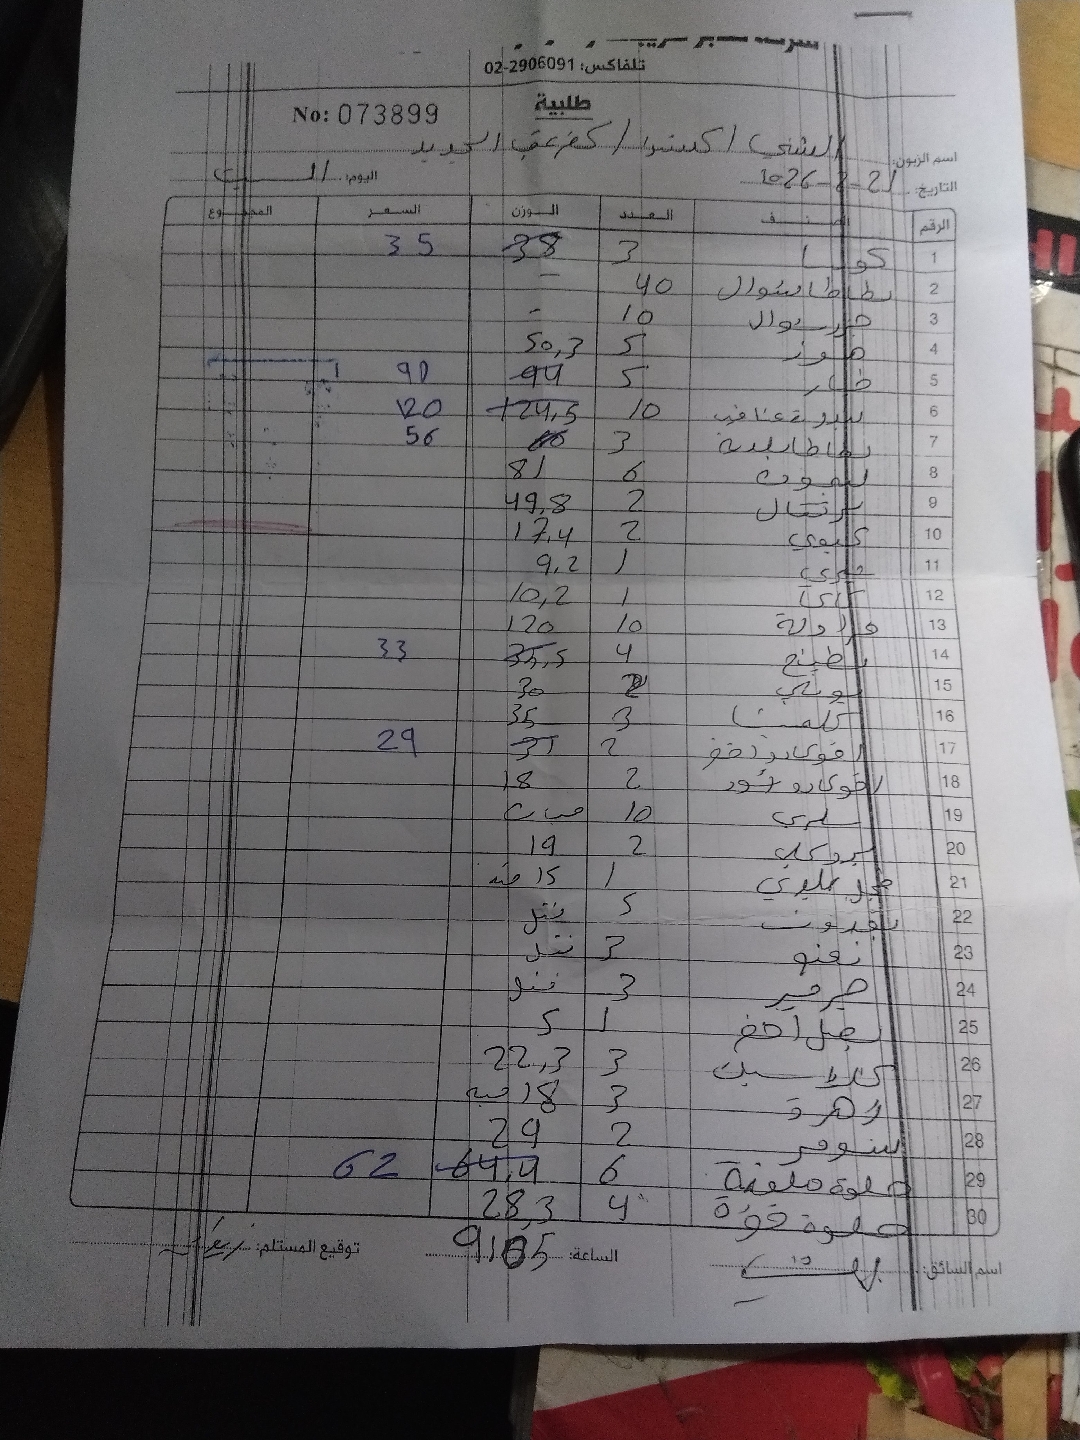 تلفاكس: 02-2906091
طلبية
No: 073899
اسم الزبون: الشني / كفر عقب الجديد
التاريخ: 21-2-2026 اليوم: السبت
الرقم الصنف العدد الوزن السعر المجموع
1 كوسا 3 38 35
2 بطاطا شوال 40 -
3 جزر شوال 10 -
4 موز 5 50,3
5 خيار 5 94 90
6 بندورة عناقيد 10 124,5 120
7 بطاطا بلدية 3 56
8 ليمون 6 81
9 برتقال 2 49,8
10 كيوي 2 17,4
11 شيري 1 9,2
12 كاكا 1 10,2
13 فراولة 10 120
14 بطيخ 4 35,5 33
15 بوملي 2 30
16 كلمنتينا 3 35
17 افوكادو اخضر 2 31 29
18 افوكادو اسود 2 18
19 سلري 10 حبات
20 بروكلي 2 19
21 فجل بلدي 1 15
22 بقدونس 5
23 نعنع 3
24 3
25 بصل اخضر 1 5
26 3 22,3
27 زهرة 3 18 حبة
28 شومر 2 29
29 حلوة ملونة 6 64,4 62
30 حلوة 4 28,3
اسم السائق: الساعة: 9:05 توقيع المستلم: